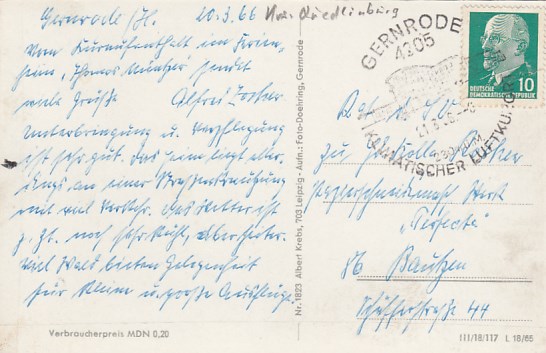 Gernrode/H. 20.3.66 Krs. Quedlinburg
Vom Kuraufenthalt im Ferien-
heim "Thomas Müntzer" sendet
viele Grüße Alfred
Unterbringung u. Verpflegung
ist sehr gut. Das Heim liegt aller-
dings an einer Straßenkreuzung
mit viel Verkehr. Das Wetter ist
z. Zt. noch sehr kühl, aber
viel Wald, bieten Gelegenheit
für kleine u. große Ausflüge.
Verbraucherpreis MDN 0,20
Nr. 1823 Albert Krebs, 703 Leipzig - Aufn.: Foto-Doehring, Gernrode
GERNRODE
4305
KLIMATISCHER LUFTKURORT
DEUTSCHE
DEMOKRATISCHE REPUBLIK 10
zu
86 Bautzen
Schäfferstraße 44
III/18/117 L 18/65